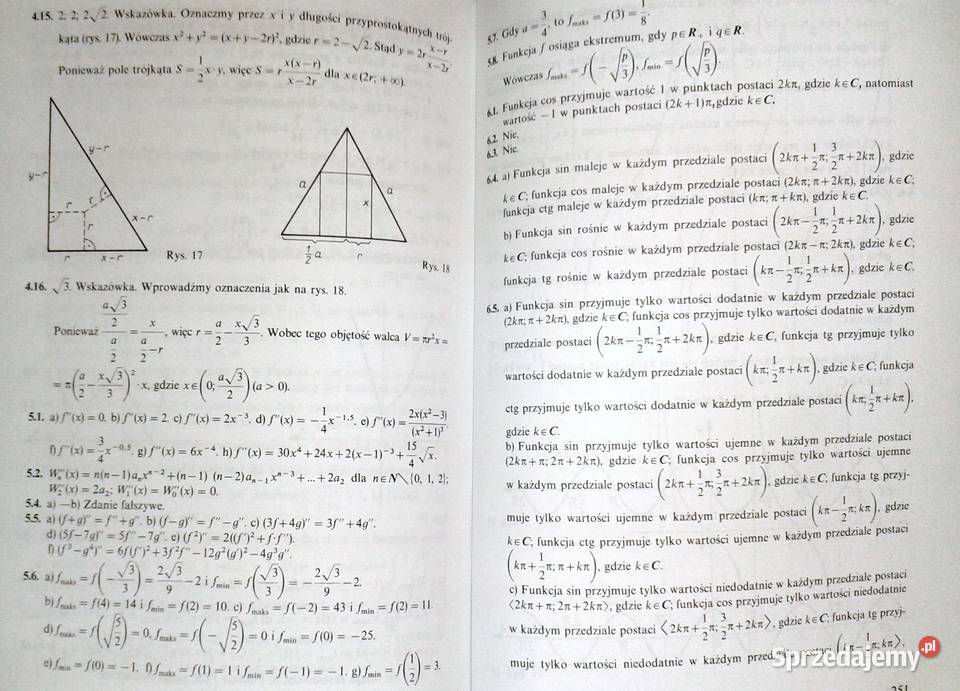 4.15. 2; 2; 2√2. Wskazówka. Oznaczmy przez x i y długości przyprostokątnych trój-
kąta (rys. 17). Wówczas x² + y² = (x + y − 2r)², gdzie r = 2 − √2. Stąd y = 2r (x−r)/(x−2r)
Ponieważ pole trójkąta S = 1/2 x·y, więc S = r x(x−r)/(x−2r) dla x∈(2r; +∞).
y−r
y−r
r
r
r
x−r
r
x−r
Rys. 17
a
a
x
1/2 a
r
Rys. 18
4.16. √3. Wskazówka. Wprowadźmy oznaczenia jak na rys. 18.
Ponieważ (a√3/2)/(a/2) = x/(a/2 − r), więc r = a/2 − x√3/3. Wobec tego objętość walca V = πr²x =
= π(a/2 − x√3/3)²·x, gdzie x∈(0; a√3/2) (a > 0).
5.1. a) f''(x) = 0. b) f''(x) = 2. c) f''(x) = 2x⁻³. d) f''(x) = −1/4 x⁻¹·⁵. e) f''(x) = 2x(x²−3)/(x²+1)³.
f) f''(x) = 3/4 x⁻⁰·⁵. g) f''(x) = 6x⁻⁴. h) f''(x) = 30x⁴ + 24x + 2(x−1)⁻³ + 15/4 √x.
5.2. Wₙ''(x) = n(n−1)aₙxⁿ⁻² + (n−1)(n−2)aₙ₋₁xⁿ⁻³ + ... + 2a₂ dla n∈N∖{0, 1, 2};
W₂''(x) = 2a₂; W₁''(x) = W₀''(x) = 0.
5.4. a) —b) Zdanie fałszywe.
5.5. a) (f+g)'' = f'' + g''. b) (f−g)'' = f'' − g''. c) (3f+4g)'' = 3f'' + 4g''.
d) (5f−7g)'' = 5f'' − 7g''. e) (f²)'' = 2((f')² + f·f'').
f) (f³−g⁴)'' = 6f(f')² + 3f²f'' − 12g²(g')² − 4g³g''.
5.6. a) fmaks = f(−√3/3) = 2√3/9 − 2 i fmin = f(√3/3) = −2√3/9 − 2.
b) fmaks = f(4) = 14 i fmin = f(2) = 10. c) fmaks = f(−2) = 43 i fmin = f(2) = 11.
d) fmaks = f(√(5/2)) = 0, fmaks = f(−√(5/2)) = 0 i fmin = f(0) = −25.
e) fmin = f(0) = −1. f) fmaks = f(1) = 1 i fmin = f(−1) = −1. g) fmin = f(1/2) = 3.
5.7. Gdy a = 3/4, to fmaks = f(3) = 1/8.
5.8. Funkcja f osiąga ekstremum, gdy p∈R₊ i q∈R.
Wówczas fmaks = f(−√(p/3)), fmin = f(√(p/3)).
6.1. Funkcja cos przyjmuje wartość 1 w punktach postaci 2kπ, gdzie k∈C, natomiast
wartość −1 w punktach postaci (2k+1)π, gdzie k∈C.
6.2. Nie.
6.3. Nie.
6.4. a) Funkcja sin maleje w każdym przedziale postaci (2kπ + 1/2 π; 3/2 π + 2kπ), gdzie
k∈C; funkcja cos maleje w każdym przedziale postaci (2kπ; π + 2kπ), gdzie k∈C;
funkcja ctg maleje w każdym przedziale postaci (kπ; π + kπ), gdzie k∈C.
b) Funkcja sin rośnie w każdym przedziale postaci (2kπ − 1/2 π; 1/2 π + 2kπ), gdzie
k∈C; funkcja cos rośnie w każdym przedziale postaci (2kπ − π; 2kπ), gdzie k∈C;
funkcja tg rośnie w każdym przedziale postaci (kπ − 1/2 π; 1/2 π + kπ), gdzie k∈C.
6.5. a) Funkcja sin przyjmuje tylko wartości dodatnie w każdym przedziale postaci
(2kπ; π + 2kπ), gdzie k∈C; funkcja cos przyjmuje tylko wartości dodatnie w każdym
przedziale postaci (2kπ − 1/2 π; 1/2 π + 2kπ), gdzie k∈C, funkcja tg przyjmuje tylko
wartości dodatnie w każdym przedziale postaci (kπ; 1/2 π + kπ), gdzie k∈C; funkcja
ctg przyjmuje tylko wartości dodatnie w każdym przedziale postaci (kπ; 1/2 π + kπ),
gdzie k∈C.
b) Funkcja sin przyjmuje tylko wartości ujemne w każdym przedziale postaci
(2kπ + π; 2π + 2kπ), gdzie k∈C; funkcja cos przyjmuje tylko wartości ujemne
w każdym przedziale postaci (2kπ + 1/2 π; 3/2 π + 2kπ), gdzie k∈C; funkcja tg przyj-
muje tylko wartości ujemne w każdym przedziale postaci (kπ − 1/2 π; kπ), gdzie
k∈C; funkcja ctg przyjmuje tylko wartości ujemne w każdym przedziale postaci
(kπ + 1/2 π; π + kπ), gdzie k∈C.
c) Funkcja sin przyjmuje tylko wartości niedodatnie w każdym przedziale postaci
⟨2kπ + π; 2π + 2kπ⟩, gdzie k∈C; funkcja cos przyjmuje tylko wartości niedodatnie
w każdym przedziale postaci ⟨2kπ + 1/2 π; 3/2 π + 2kπ⟩, gdzie k∈C; funkcja tg przyj-
muje tylko wartości niedodatnie w każdym postaci (kπ − 1/2 π; kπ⟩,
Sprzedajemy.pl
251